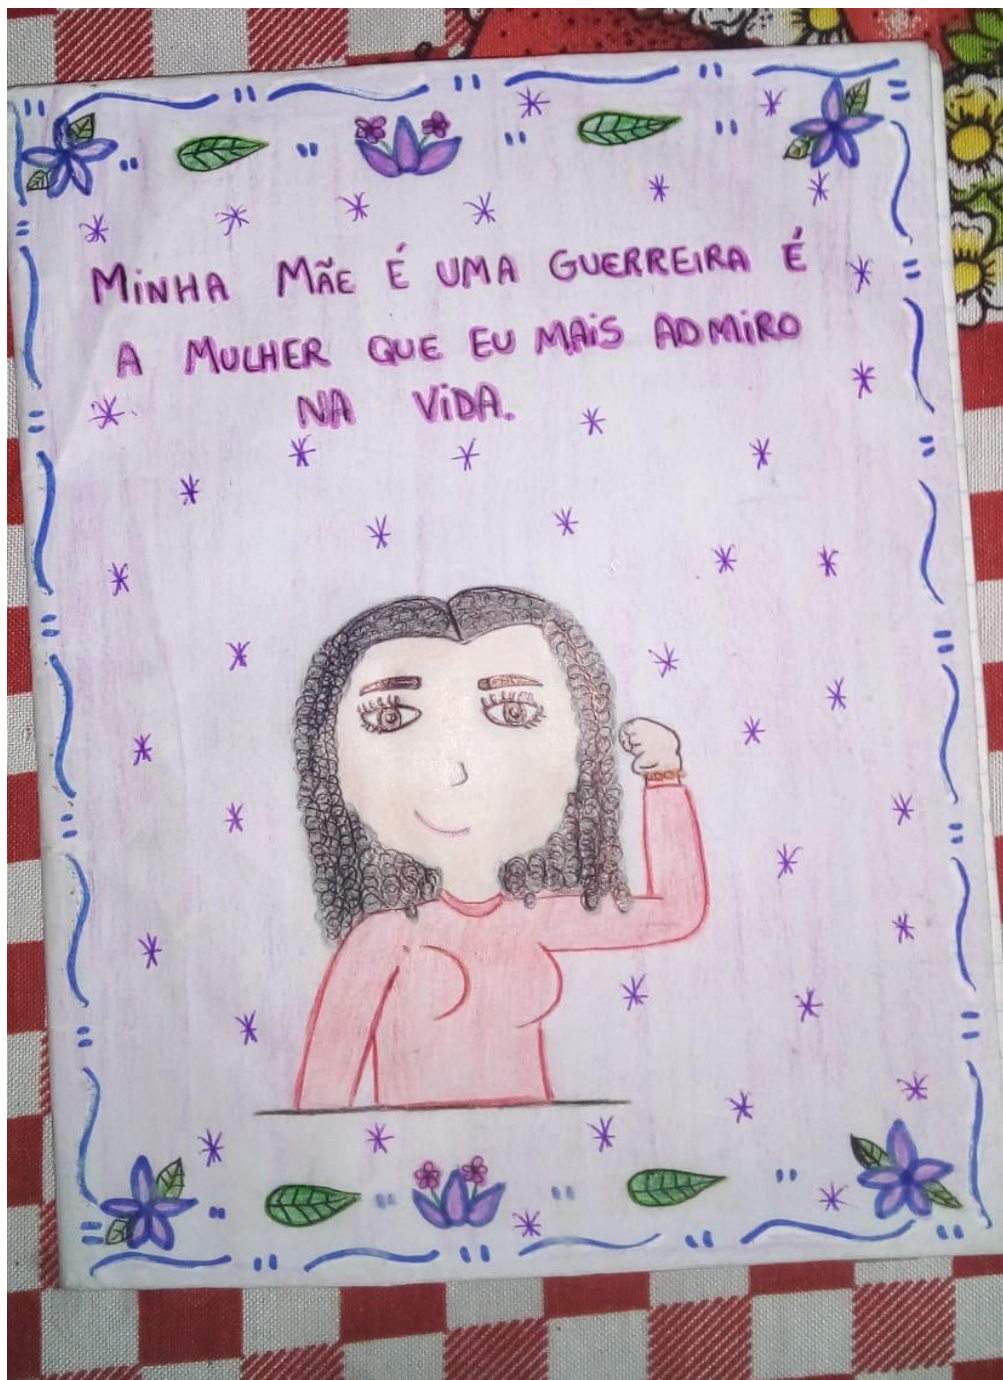 MiNHA MÃE É UMA GUERREIRA É
A MULHER QUE EU MAiS ADMiRO
NA ViDA.